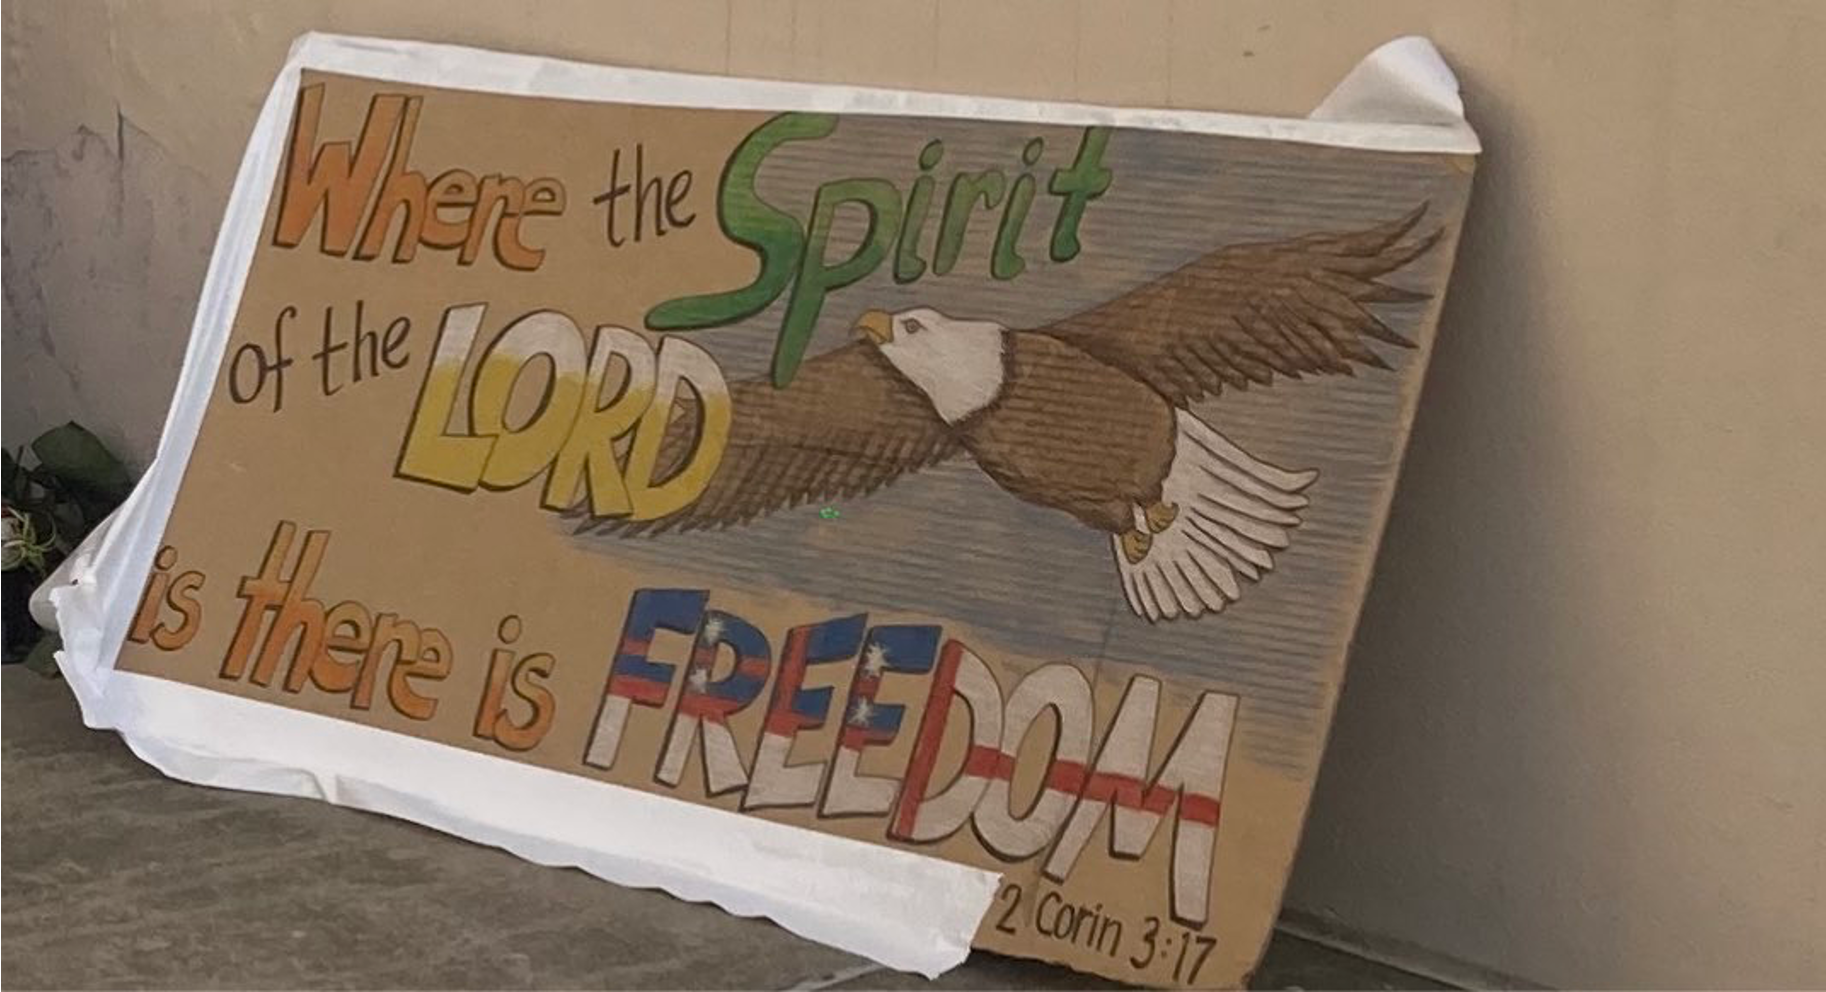 Where the Spirit
of the LORD
is there is FREEDOM
2 Corin 3:17